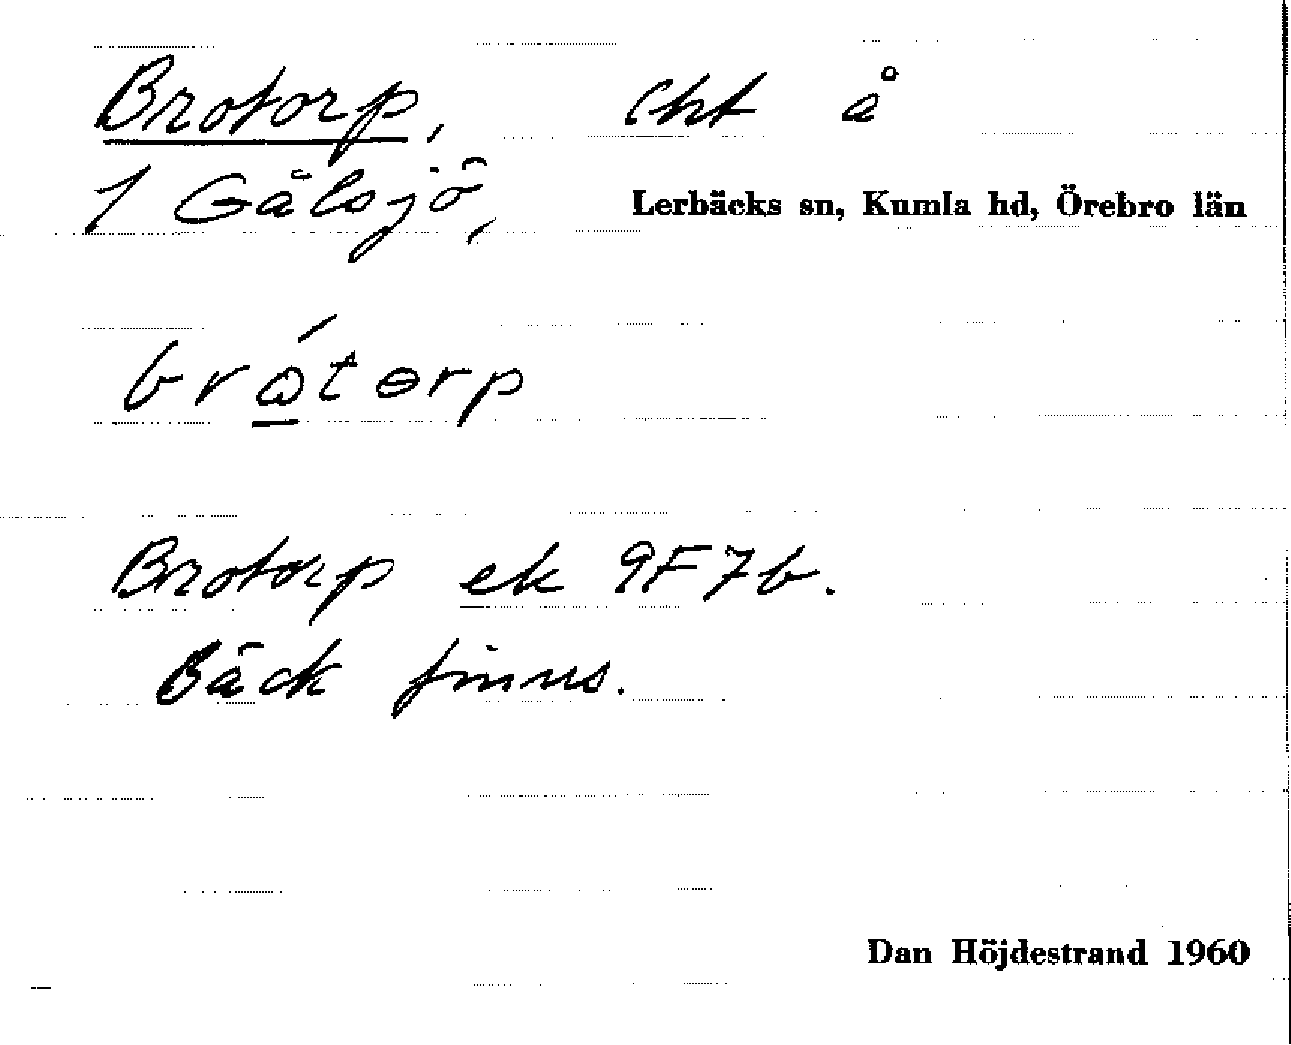 Brotorp, lht å
1 Gålsjö, Lerbäcks sn, Kumla hd, Örebro län
brώtɵrp
Brotorp ek 9F7b.
Bäck finns.
Dan Höjdestrand 1960